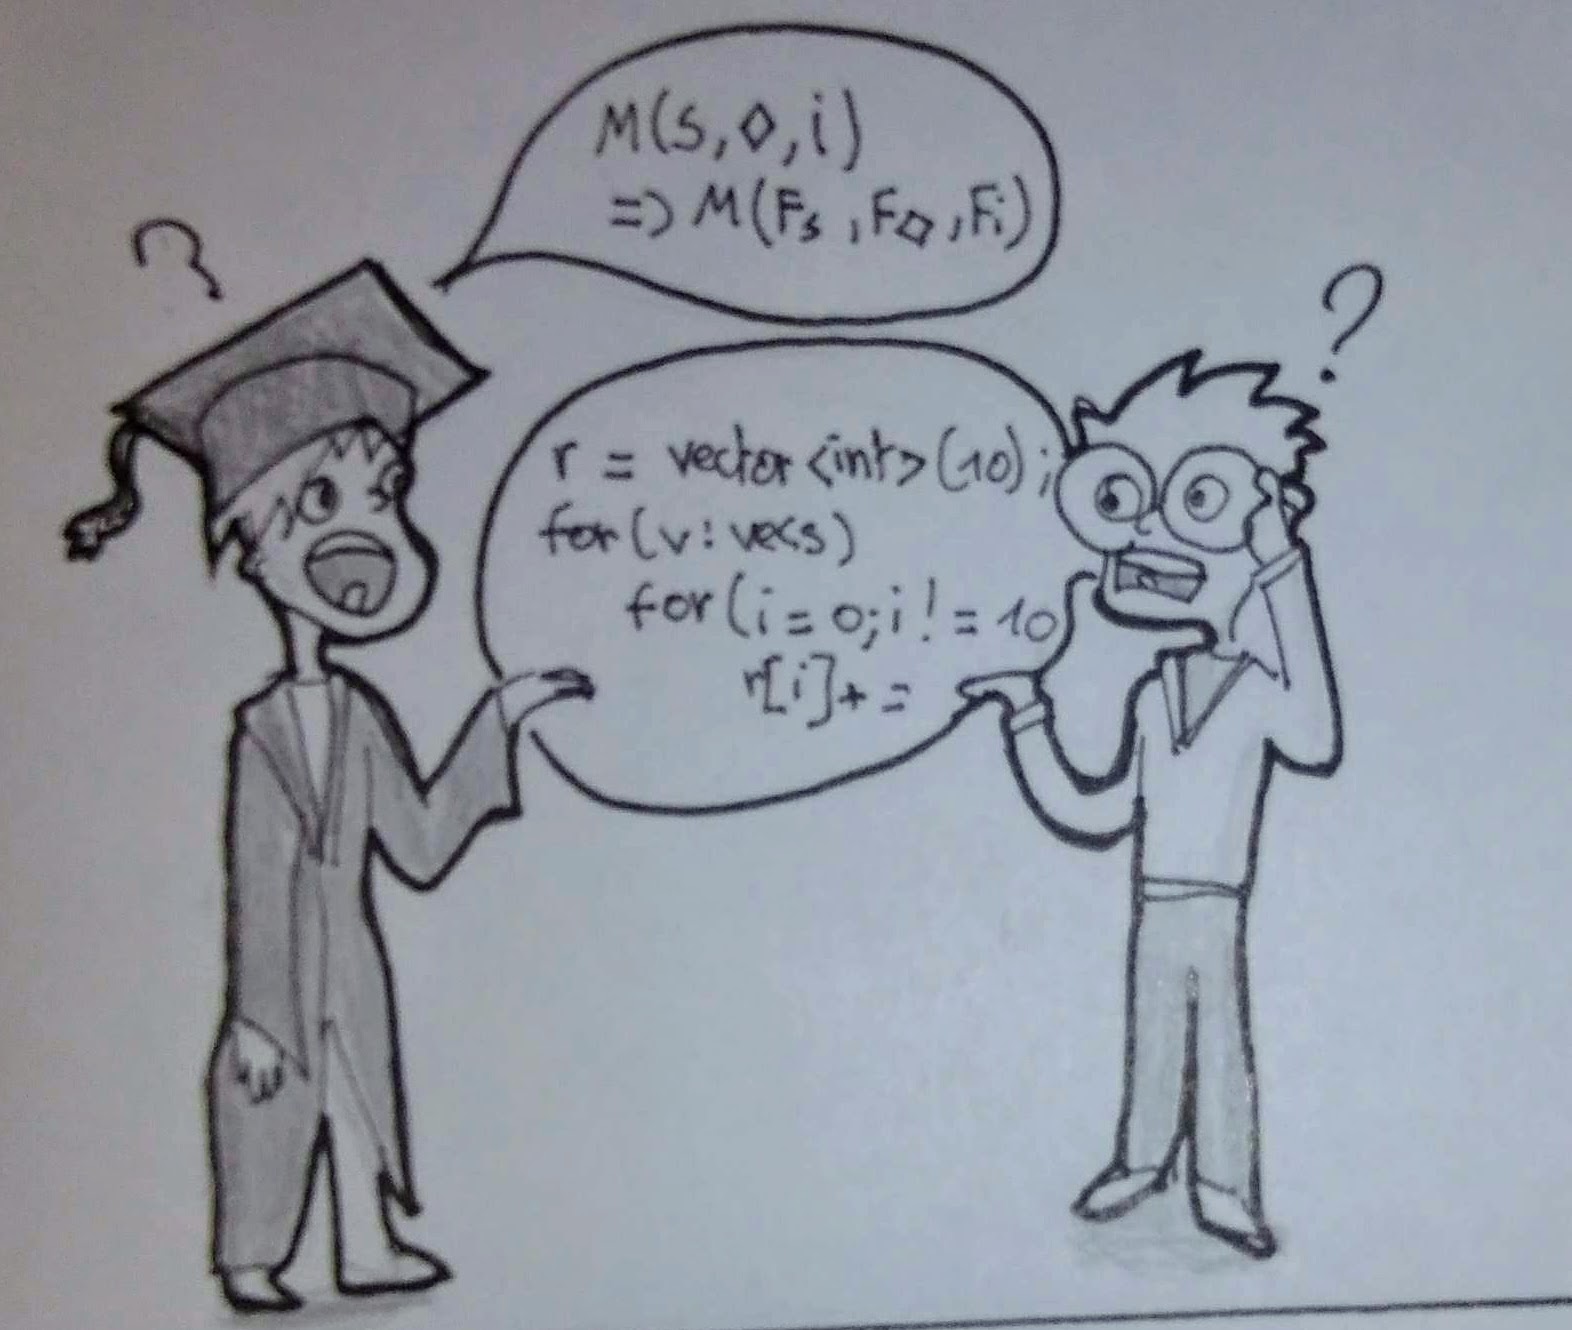 ?
M(S,◇,i)
=> M(Fs, F◇, Fi)
?
r = vector<int>(10);
for(v: vecs)
for(i=0;i!=10
r[i]+=